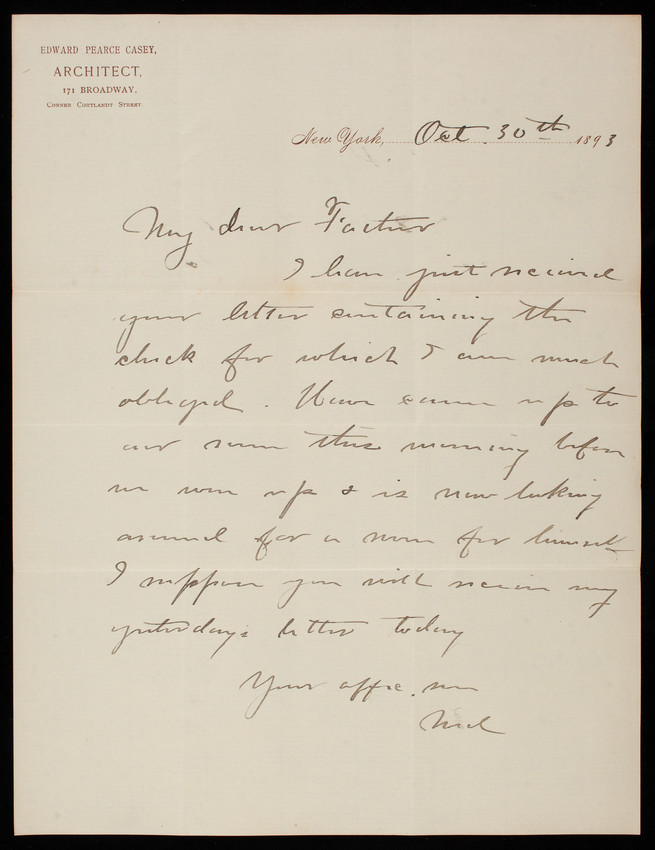 EDWARD PEARCE CASEY,
ARCHITECT,
171 BROADWAY,
CORNER CORTLANDT STREET
New York, Oct. 30th 1893
My dear Father
I have just received
your letter containing the
check for which I am much
obliged. came up to
our room this morning before
we were up & is now looking
around for a room for himself
I suppose you will receive my
yesterdays letter today
Your affec. son
Ned